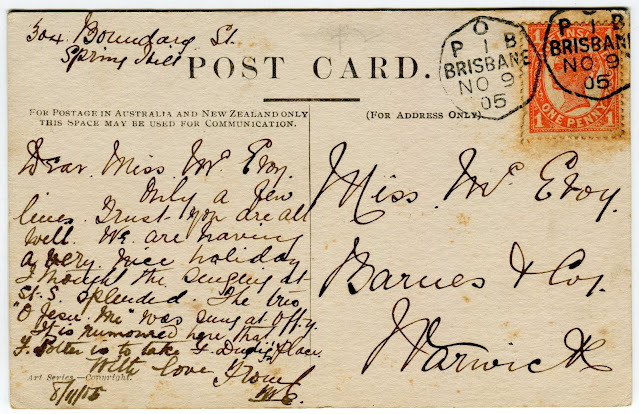 304 Boundary St.
Spring Hill
POST CARD.
O
P I B
BRISBANE
NO 9
05
O
P I B
BRISBANE
NO 9
05
ONE PENNY
FOR POSTAGE IN AUSTRALIA AND NEW ZEALAND ONLY
THIS SPACE MAY BE USED FOR COMMUNICATION.
(FOR ADDRESS ONLY)
Dear Miss Mc Evoy.
Only a few
lines. Trust you are all
well. We are having
a very nice holiday
Thought the singing at
St. S. splended. The trio
"O Jesu Mi" was sung at Off.y.
It is rumoured here that
F. Potter is to take F. place.
With love from
Art Series—Copyright.
8/11/05
Miss Mc Evoy.
Barnes & Coy.
Warwick